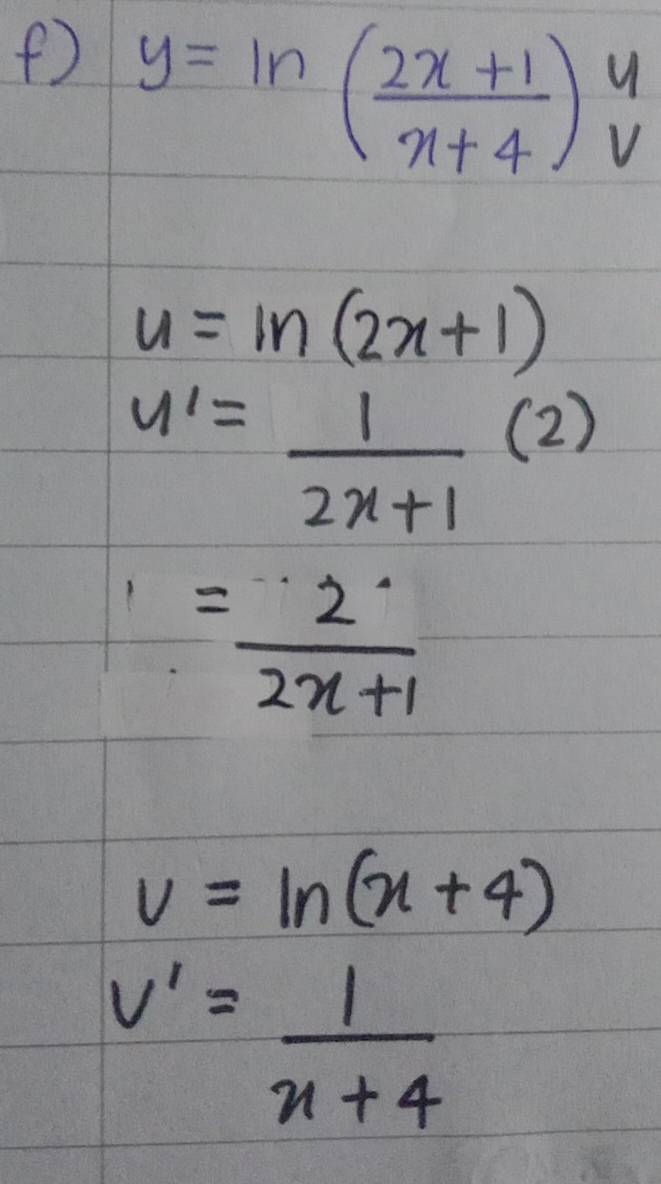 f) y = ln (2x + 1 / x + 4) u v
u = ln (2x + 1)
u' = 1 / 2x + 1 (2)
= 2 / 2x + 1
v = ln (x + 4)
v' = 1 / x + 4